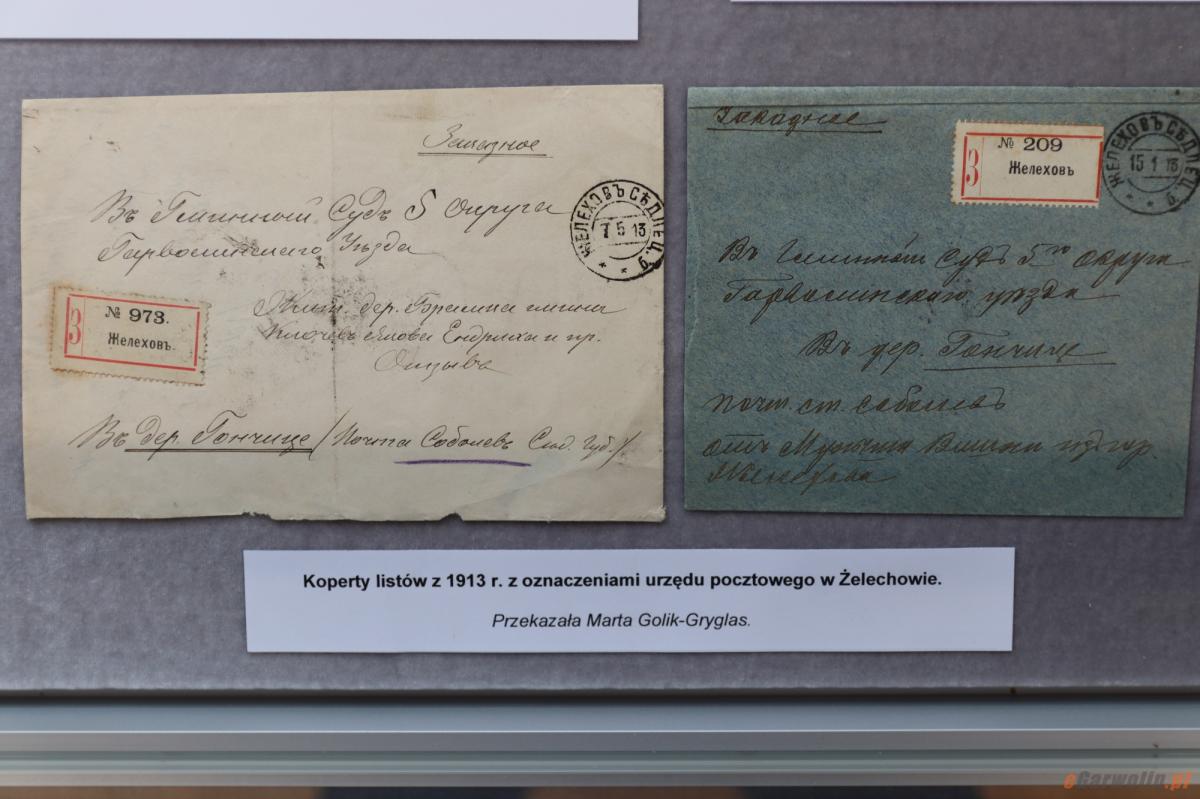 Заказное
Въ Гминный Судъ 5 Округа
Гарволинскаго Уѣзда
ЖЕЛЕХОВЪ СѢДЛЕЦ. г.
7 5 13
З
№ 973.
Желеховъ.
Жит. дер.
Въ дер. Гончице (Почта Соболевъ Сѣд. Губ.)
Заказное
З
№ 209
Желеховъ
ЖЕЛЕХОВЪ СѢДЛЕЦ. г.
15 1 13
Въ Гминный Судъ 5го округа
Гарволинскаго уѣзда
Въ дер. Гончице
почт. ст. Соболевъ
отъ
Желехова
Koperty listów z 1913 r. z oznaczeniami urzędu pocztowego w Żelechowie.
Przekazała Marta Golik-Gryglas.
eGarwolin.pl